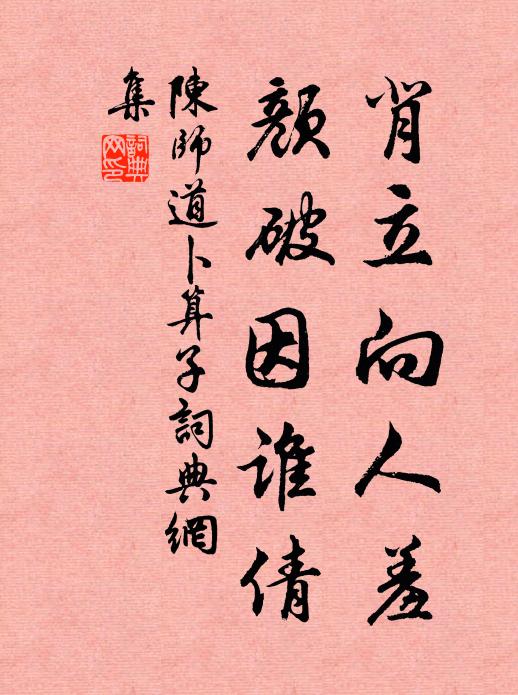 背立向人羞
顏破因誰倩
陳師道卜算子詞典網
集
詞典
网印